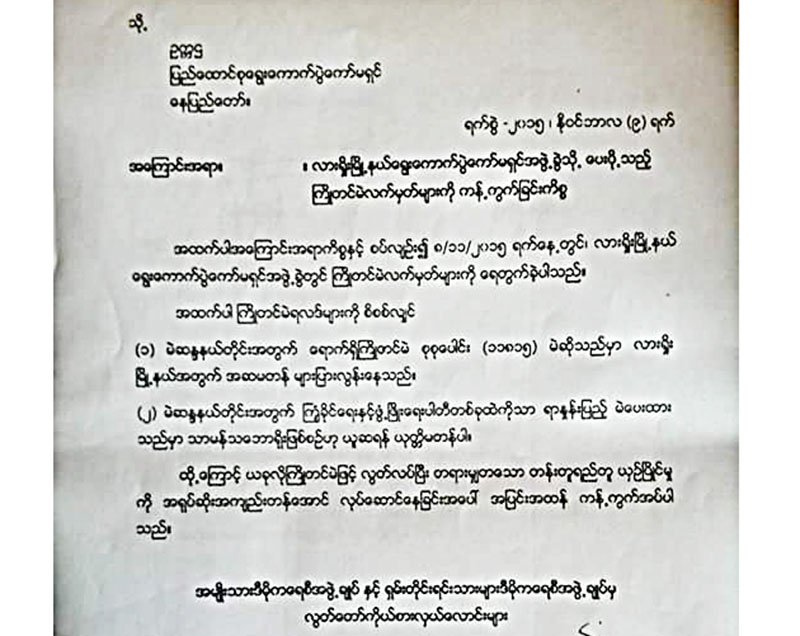 သို့
ဥက္ကဋ္ဌ
ပြည်ထောင်စုရွေးကောက်ပွဲကော်မရှင်
နေပြည်တော်။
ရက်စွဲ -၂၀၁၅ ၊ နိုဝင်ဘာလ (၉) ရက်
အကြောင်းအရာ။ ။ လားရှိုးမြို့နယ်ရွေးကောက်ပွဲကော်မရှင်အဖွဲ့ခွဲသို့ ပေးပို့သည့်
ကြိုတင်မဲလက်မှတ်များကို ကန့်ကွက်ခြင်းကိစ္စ
အထက်ပါအကြောင်းအရာကိစ္စနှင့် စပ်လျဉ်း၍ ၈/၁၁/၂၀၁၅ ရက်နေ့တွင်၊ လားရှိုးမြို့နယ်
ရွေးကောက်ပွဲကော်မရှင်အဖွဲ့ခွဲတွင် ကြိုတင်မဲလက်မှတ်များကို ရေတွက်ခဲ့ပါသည်။
အထက်ပါ ကြိုတင်မဲရလဒ်များကို စိစစ်လျှင်
(၁) မဲဆန္ဒနယ်တိုင်းအတွက် ရောက်ရှိကြိုတင်မဲ စုစုပေါင်း (၁၁၈၁၅) မဲဆိုသည်မှာ လားရှိုး
မြို့နယ်အတွက် အဆမတန် များပြားလွန်းနေသည်။
(၂) မဲဆန္ဒနယ်တိုင်းအတွက် ကြံ့ခိုင်ရေးနှင့်ဖွံ့ဖြိုးရေးပါတီတစ်ခုထဲကိုသာ ရာနှုန်းပြည့် မဲပေးထား
သည်မှာ သာမန်သဘောရိုးဖြစ်စဉ်ဟု ယူဆရန် ယုတ္တိမတန်ပါ။
ထို့ကြောင့် ယခုလိုကြိုတင်မဲဖြင့် လွတ်လပ်ပြီး တရားမျှတသော တန်းတူရည်တူ ယှဉ်ပြိုင်မှု
ကို အရုပ်ဆိုးအကျည်းတန်အောင် လုပ်ဆောင်နေခြင်းအပေါ် အပြင်းအထန် ကန့်ကွက်အပ်ပါ
သည်။
အမျိုးသားဒီမိုကရေစီအဖွဲ့ချုပ် နှင့် ရှမ်းတိုင်းရင်းသားများဒီမိုကရေစီအဖွဲ့ချုပ်မှ
လွှတ်တော်ကိုယ်စားလှယ်လောင်းများ